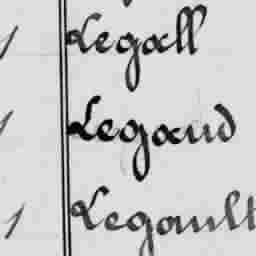 1 Legall
1 Legaud
1 Legault